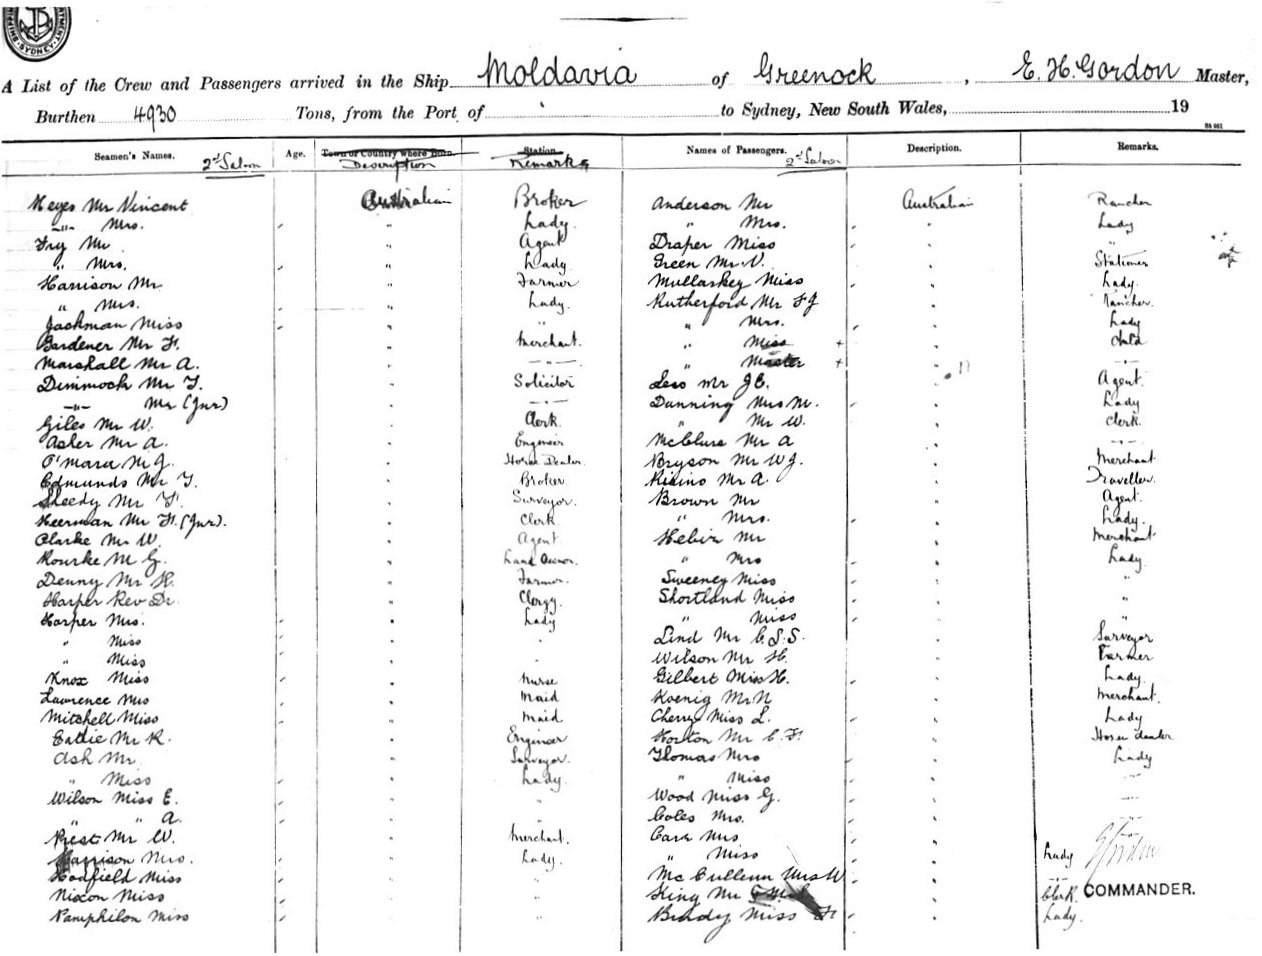 SYDNEY
A List of the Crew and Passengers arrived in the Ship Moldavia of Greenock, E. H. Gordon Master,
Burthen 4930 Tons, from the Port of to Sydney, New South Wales, 19
84 961
Seamen's Names. 2nd Saloon Age. Town or Country where Born. Description Station Remarks Names of Passengers. 2nd Saloon Description. Remarks.
Keyes Mr Vincent Australian Broker Anderson Mr Australian Rancher
-"- Mrs. " Lady. " Mrs. " Lady
Fry Mr " Agent Draper Miss " "
" Mrs. " Lady Green Mr V. " Stationer
Harrison Mr " Farmer Mullaskey Miss " Lady.
" Mrs. " Lady. Rutherford Mr F J " Rancher.
Jackman Miss " " " Mrs. " Lady
Gardener Mr F. " Merchant. " Miss + " Child
Marshall Mr A. " -"- " Master + " -"-
Dimmock Mr T. " Solicitor Less Mr J C. " Agent.
-"- Mr (Jnr) " -"- Dunning Mrs M. " Lady
Giles Mr W. " Clerk. " Mr W. " Clerk.
Asher Mr A. " Engineer McClure Mr A " -"-
O'Mara M J. " Horse Dealer Bryson Mr W J. " Merchant
Edmunds Mr T. " Broker Risino Mr A. " Traveller.
Sheedy Mr F. " Surveyor. Brown Mr " Agent.
Heerman Mr F. (Jnr). " Clerk " Mrs. " Lady.
Clarke Mr W. " Agent Mr " Merchant
Rourke M G. " Land Owner. " Mrs " Lady.
Denny Mr H. " Farmer. Sweeney Miss " "
Harper Rev Dr. " Clergy. Shortland Miss " "
Harper Mrs. " Lady " Miss " "
" Miss " " Lind Mr C. S. S. " Surveyor
" Miss " " Wilson Mr H. " Farmer
Knox Miss " Nurse Gilbert Miss H. " Lady.
Lawrence Miss " Maid Koenig Mr N " Merchant.
Mitchell Miss " Maid Cherry Miss L. " Lady
Eattie Mr R. " Engineer Horton Mr C. F. " Horse dealer
Ash Mr " Surveyor. Thomas Mrs " Lady
" Miss " Lady. " Miss " -"-
Wilson Miss E. " " Wood Miss G. " -"-
" " A. " " Coles Mrs. " -"-
Priest Mr W. " Merchant. Carr Mrs " -"-
Harrison Mrs. " Lady. " Miss " Lady
Hadfield Miss " " McCullenn Mrs W " -"-
Nixon Miss " " King Mr " Clerk. COMMANDER.
Pamphilon Miss " " Brady Miss F " Lady.